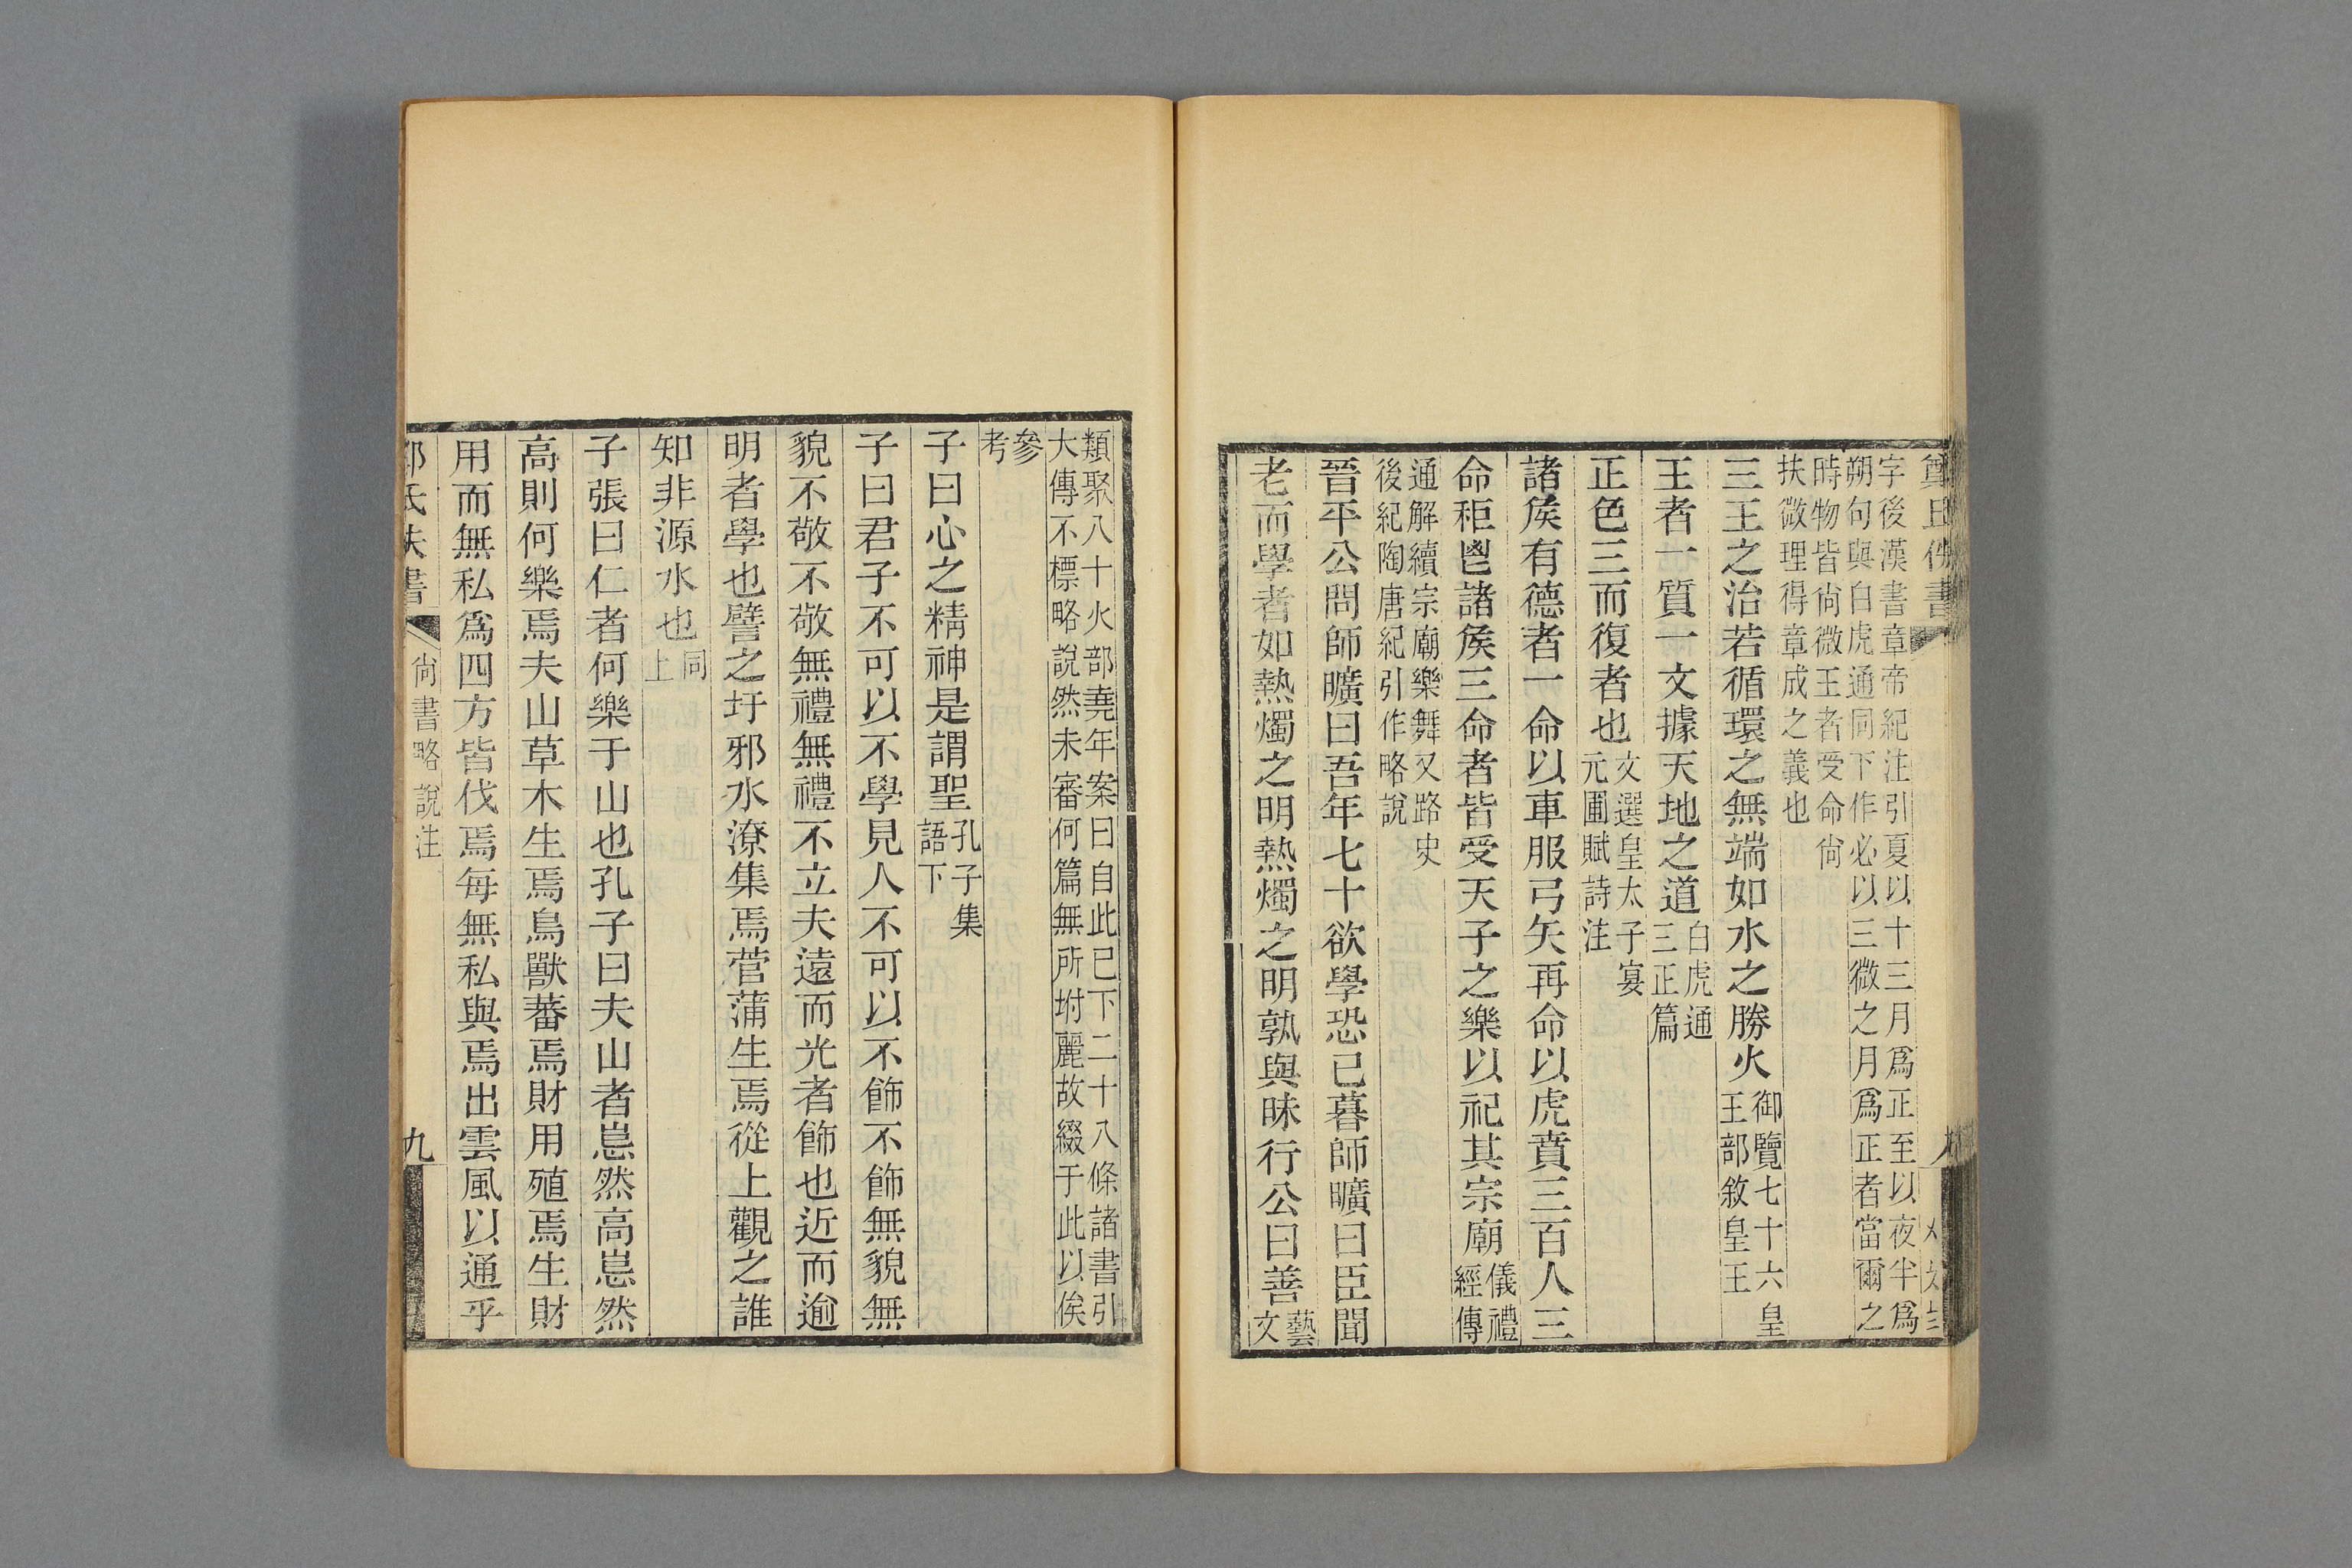 字後漢書章帝紀注引夏以十三月爲正至以夜半爲
朔句與白虎通同下作必以三微之月爲正者當爾之
時物皆尙微王者受命尙
扶微理得章成之義也
三王之治若循環之無端如水之勝火御覽七十六皇
王部敘皇王
王者一質一文據天地之道白虎通
三正篇
正色三而復者也文選皇太子宴
元圃賦詩注
諸矦有德者一命以車服弓矢再命以虎賁三百人三
命秬鬯諸矦三命者皆受天子之樂以祀其宗廟儀禮
經傳
通解續宗廟樂舞又路史
後紀陶唐紀引作略說
晉平公問師曠曰吾年七十欲學恐已暮師曠曰臣聞
老而學者如熱燭之明熱燭之明孰與昧行公曰善藝
文
類聚八十火部堯年案曰自此已下二十八條諸書引
大傳不標略說然未審何篇無所坿麗故綴于此以俟
參
考
子曰心之精神是謂聖孔子集
語下
子曰君子不可以不學見人不可以不飾不飾無貌無
貌不敬不敬無禮無禮不立夫遠而光者飾也近而逾
明者學也譬之圩邪水潦集焉菅蒲生焉從上觀之誰
知非源水也同
上
子張曰仁者何樂于山也孔子曰夫山者嵬然高嵬然
高則何樂焉夫山草木生焉鳥獸蕃焉財用殖焉生財
用而無私爲四方皆伐焉每無私與焉出雲風以通乎
尙書略說注
九